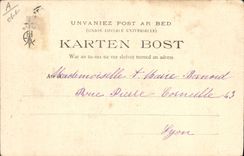 UNVANIEZ POST AR BED
(UNION POSTALE UNIVERSELLE)
KARTEN BOST
War an tu-ma ne vez skrivet nemed an adres
A Mademoiselle Marie Bernard
Rue Pierre Corneille 43
Lyon